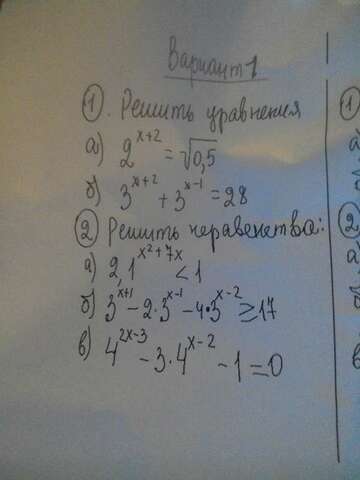 Вариант 1
①. Решить уравнения
а) 2^{x+2} = √0,5
б) 3^{x+2} + 3^{x-1} = 28
② Решить неравенства:
а) 2,1^{x²+7x} < 1
б) 3^{x+1} - 2·3^{x-1} - 4·3^{x-2} ≥ 17
в) 4^{2x-3} - 3·4^{x-2} - 1 = 0
①
а
②
а
в